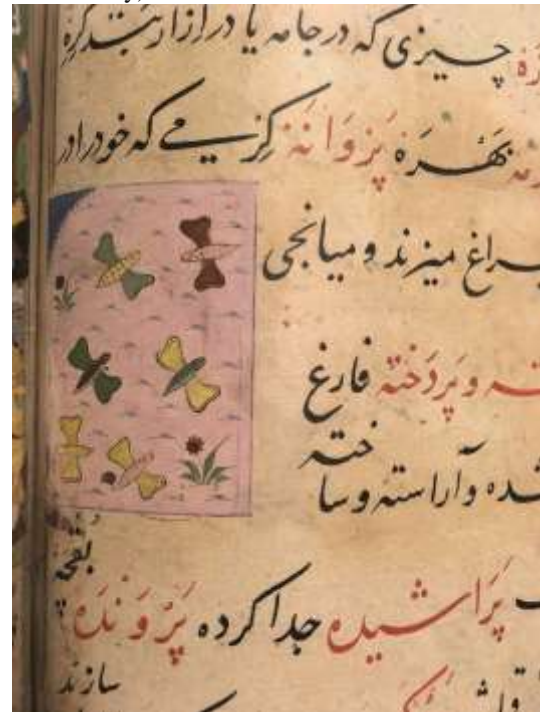 چیزی که در جامه یا در ازار بندند کره
بهره پروانه کرمی که خود را در
چراغ میزند و میانجی
و پردخته فارغ
شده و آراسته و ساخته
پراشیده جدا کرده پرونده بقچه
سازند